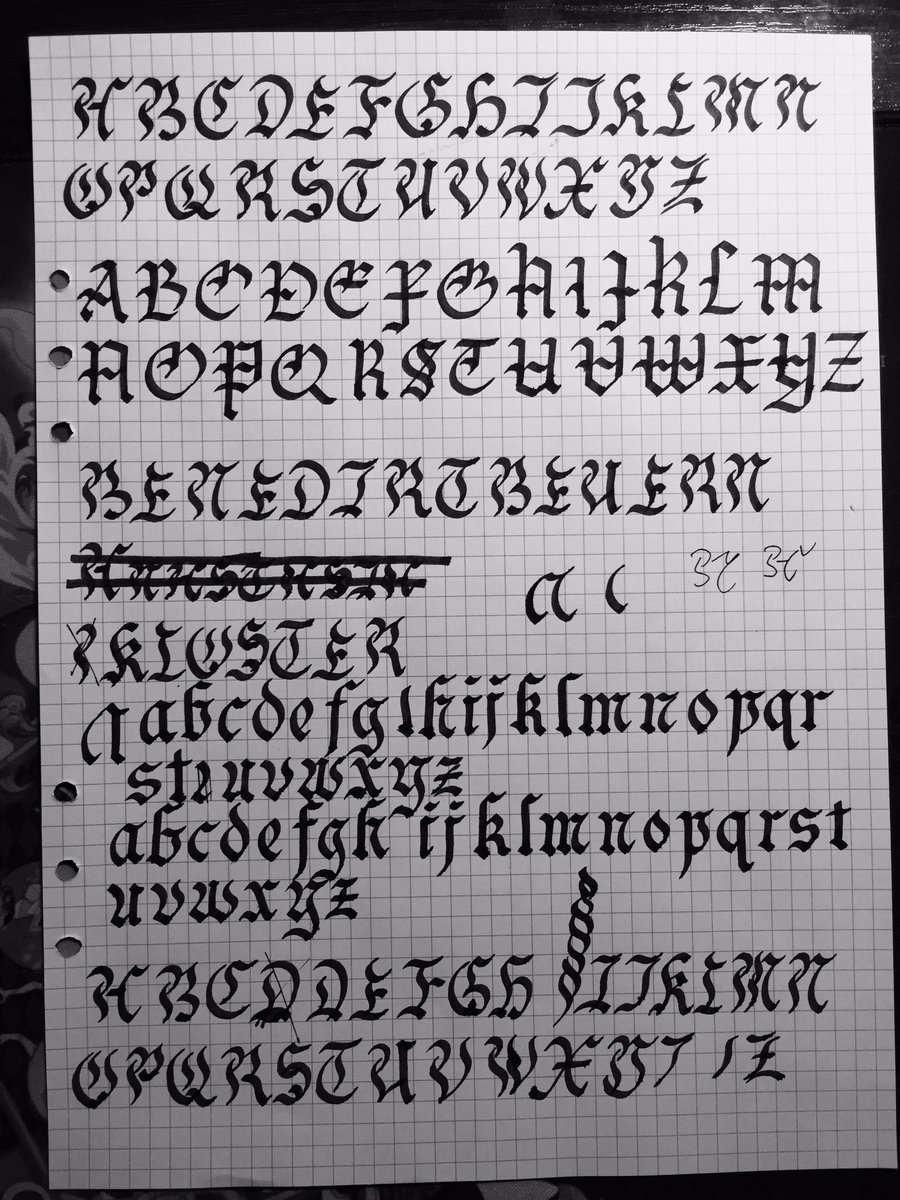 ABCDEFGHIJKLMN
OPQRSTUVWXYZ
ABCDEFGHIJKLM
NOPQRSTUVWXYZ
BENEDIKTBEUERN
a c
KLOSTER
a abcdefglhijklmnopqr
stuvwxyz
abcdefghijklmnopqrst
uvwxyz
ABCDDEFGH IJKLMN
OPQRSTUVWXYZ